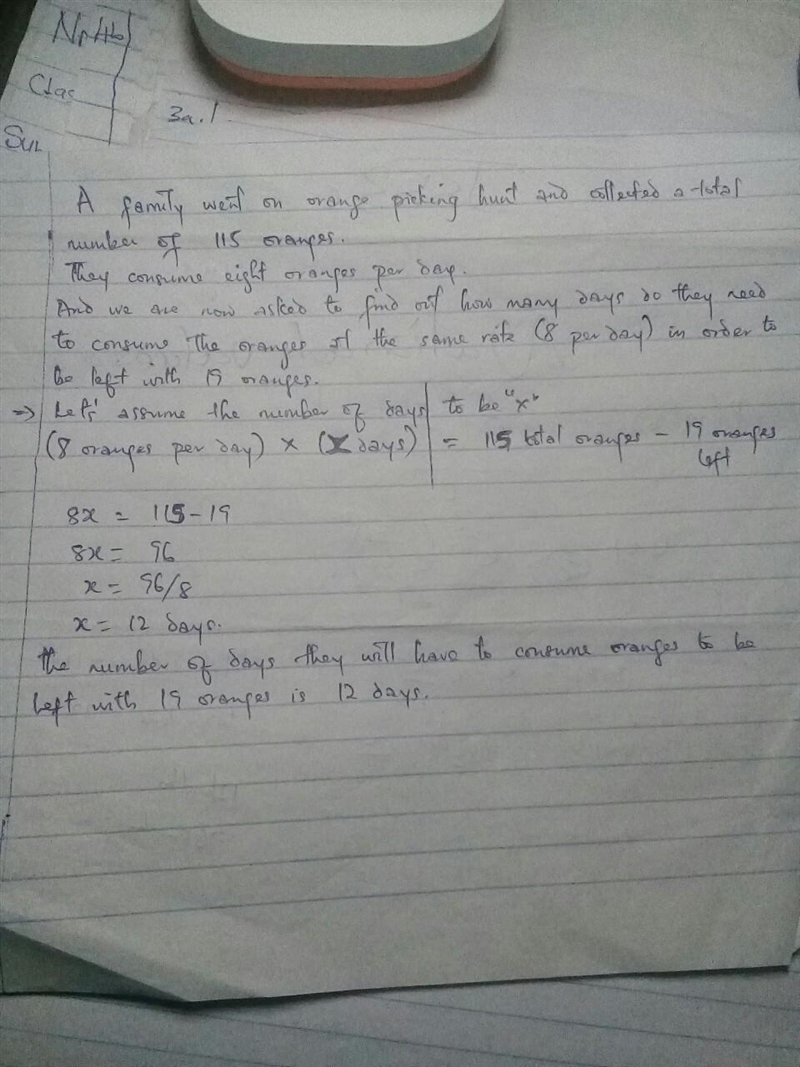 Clas
3a.1
A family went on orange picking hunt and collected a total
number of 115 oranges.
They consume eight oranges per day.
And we are now asked to find out how many days do they need
to consume the oranges at the same rate (8 per day) in order to
be left with 19 oranges.
⇒ Let's assume the number of days to be "x"
(8 oranges per day) × (x days) = 115 total oranges - 19 oranges
left
8x = 115-19
8x = 96
x = 96/8
x = 12 days.
the number of days they will have to consume oranges to be
left with 19 oranges is 12 days.